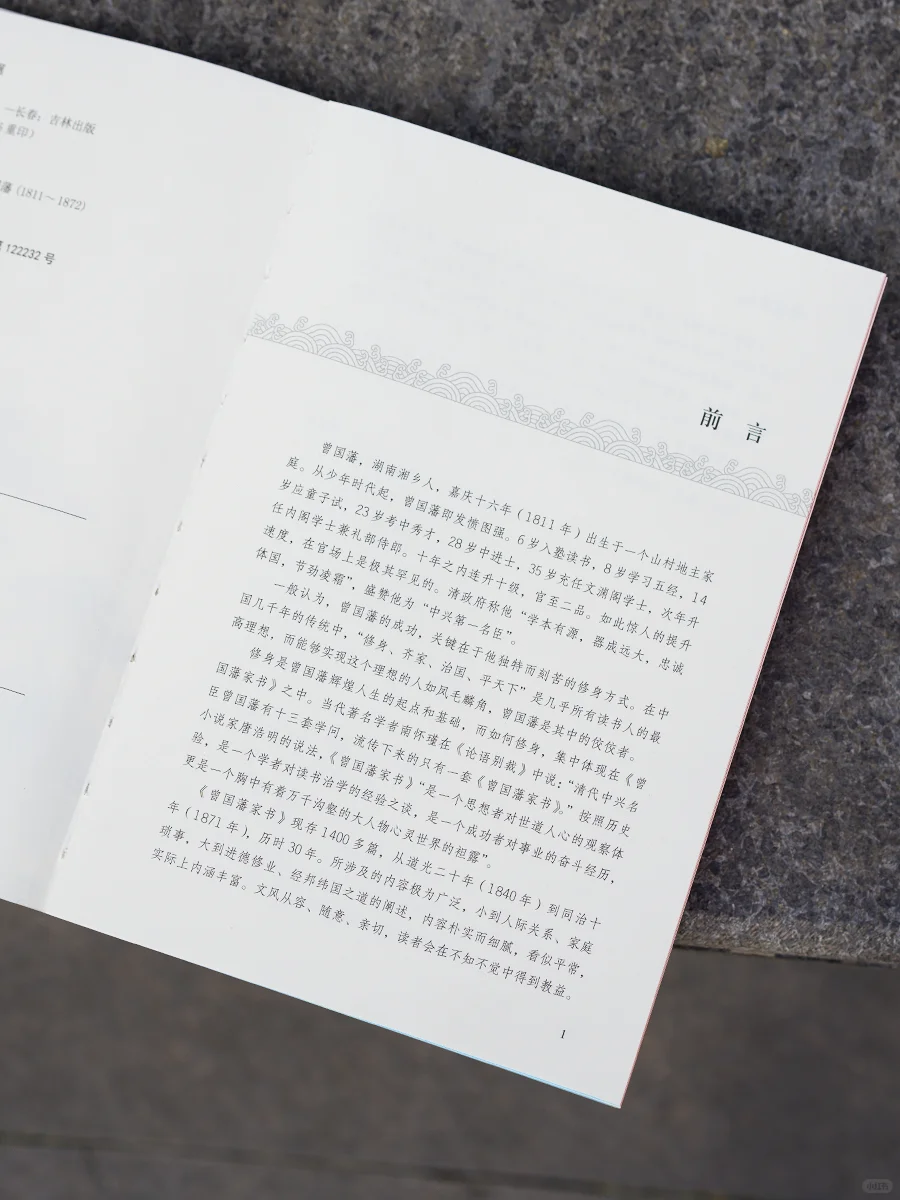 —长春：吉林出版
重印）
藩（1811～1872）
第 122232 号
前 言
曾国藩，湖南湘乡人，嘉庆十六年（1811 年）出生于一个山村地主家
庭。从少年时代起，曾国藩即发愤图强。6 岁入塾读书，8 岁学习五经，14
岁应童子试，23 岁考中秀才，28 岁中进士，35 岁充任文渊阁学士，次年升
任内阁学士兼礼部侍郎。十年之内连升十级，官至二品。如此惊人的提升
速度，在官场上是极其罕见的。清政府称他“学本有源，器成远大，忠诚
体国，节劲凌霜”，盛赞他为“中兴第一名臣”。
一般认为，曾国藩的成功，关键在于他独特而刻苦的修身方式。在中
国几千年的传统中，“修身、齐家、治国、平天下”是几乎所有读书人的最
高理想，而能够实现这个理想的人如凤毛麟角，曾国藩是其中的佼佼者。
修身是曾国藩辉煌人生的起点和基础，而如何修身，集中体现在《曾
国藩家书》之中。当代著名学者南怀瑾在《论语别裁》中说：“清代中兴名
臣曾国藩有十三套学问，流传下来的只有一套《曾国藩家书》。”按照历史
小说家唐浩明的说法，《曾国藩家书》“是一个思想者对世道人心的观察体
验，是一个学者对读书治学的经验之谈，是一个成功者对事业的奋斗经历，
更是一个胸中有着万千沟壑的大人物心灵世界的袒露”。
《曾国藩家书》现存 1400 多篇，从道光二十年（1840 年）到同治十
年（1871 年），历时 30 年。所涉及的内容极为广泛，小到人际关系、家庭
琐事，大到进德修业、经邦纬国之道的阐述，内容朴实而细腻，看似平常，
实际上内涵丰富。文风从容、随意、亲切，读者会在不知不觉中得到教益。
1